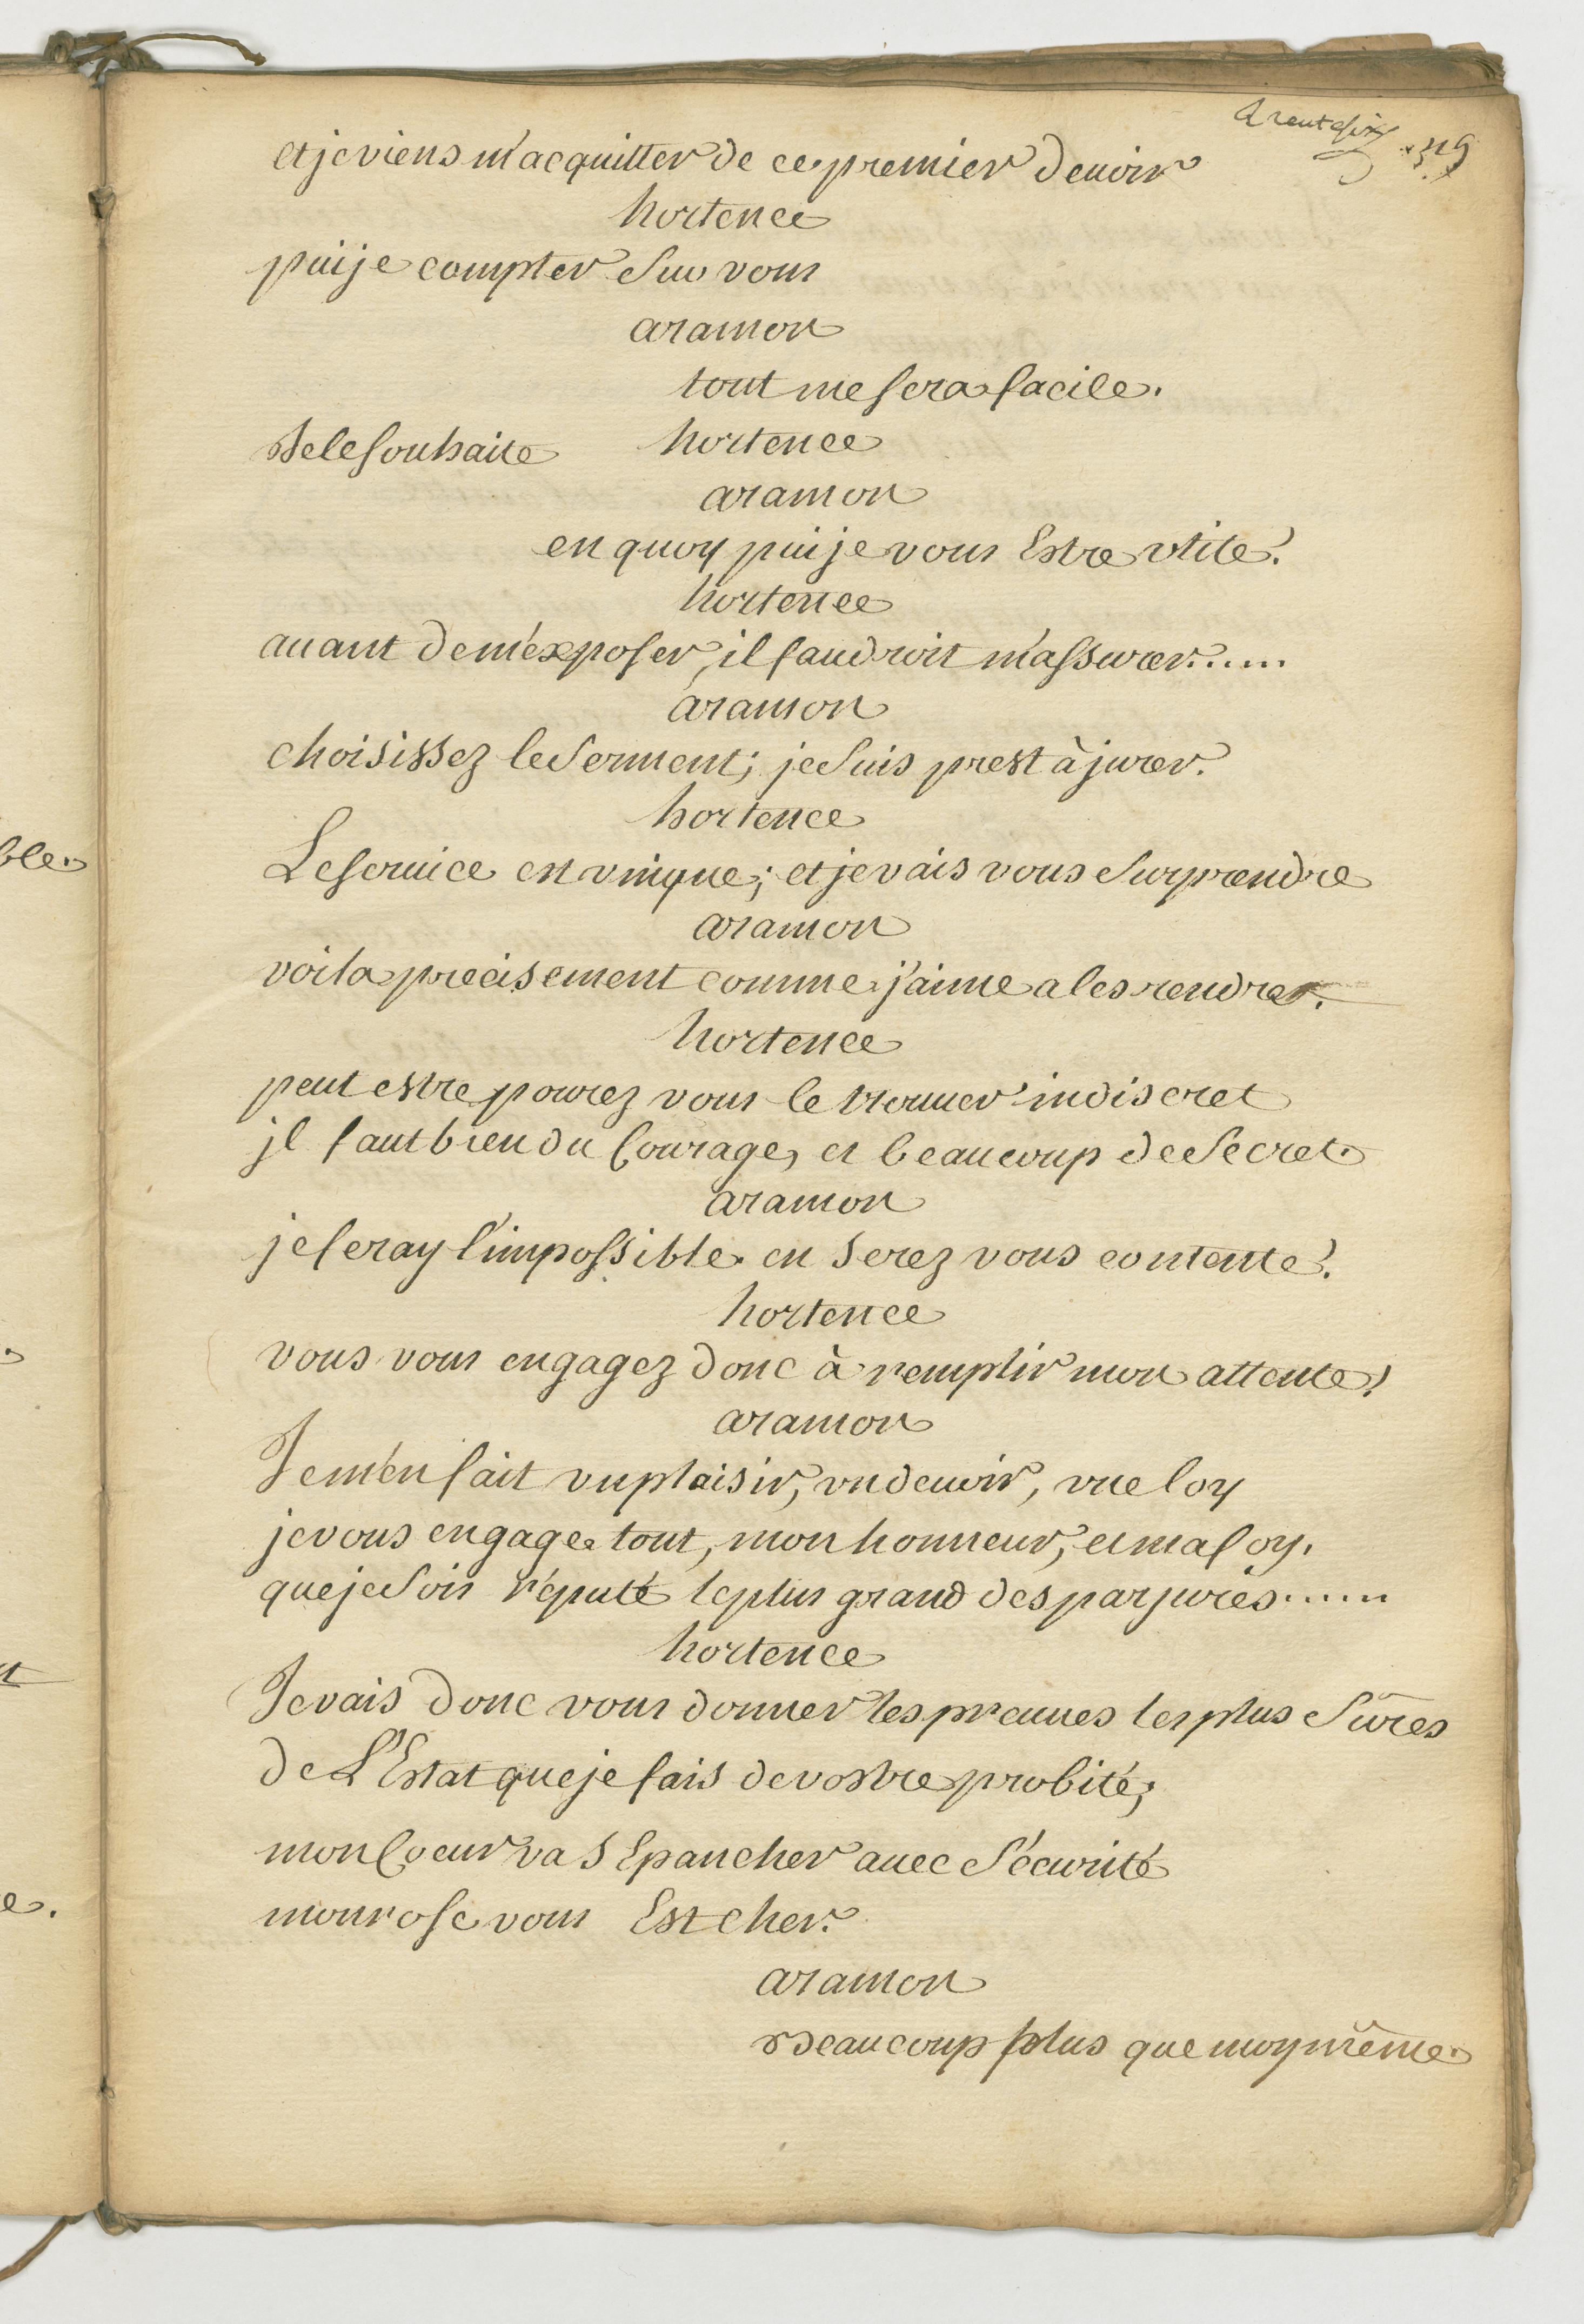 trente six
et je viens m'acquitter de ce premier deuoir
hortence
puije compter sur vous
aramon
tout me sera facile.
Je le souhaite hortence
aramon
en quoy puije vous Estre vtile?
hortence
auant de m'éxposer, il faudroit m'assurer.....
aramon
choisissez le serment; je suis prest à jurer.
hortence
Le seruice est vnique; et je vais vous surprendre
aramon
voila precisement comme j'aime a les rendre.
hortence
peut estre pourez vous le trouuer indiscret
jl faut bien du Courage, et beaucoup de secret.
aramon
je feray l'impossible. en serez vous contente?
hortence
vous vous engagez donc à remplir mon attente?
aramon
Je m'en fait vn plaisir, vn deuoir, vne loy
je vous engage tout, mon honneur, et ma foy.
que je sois réputé le plus grand des parjures.....
hortence
Je vais donc vous donner les preuues les plus sûres
de L'Estat que je fais de vostre probité;
mon Coeur va s Epancher auec sécurité
monrose vous Est cher.
aramon
Beaucoup plus que moy même.